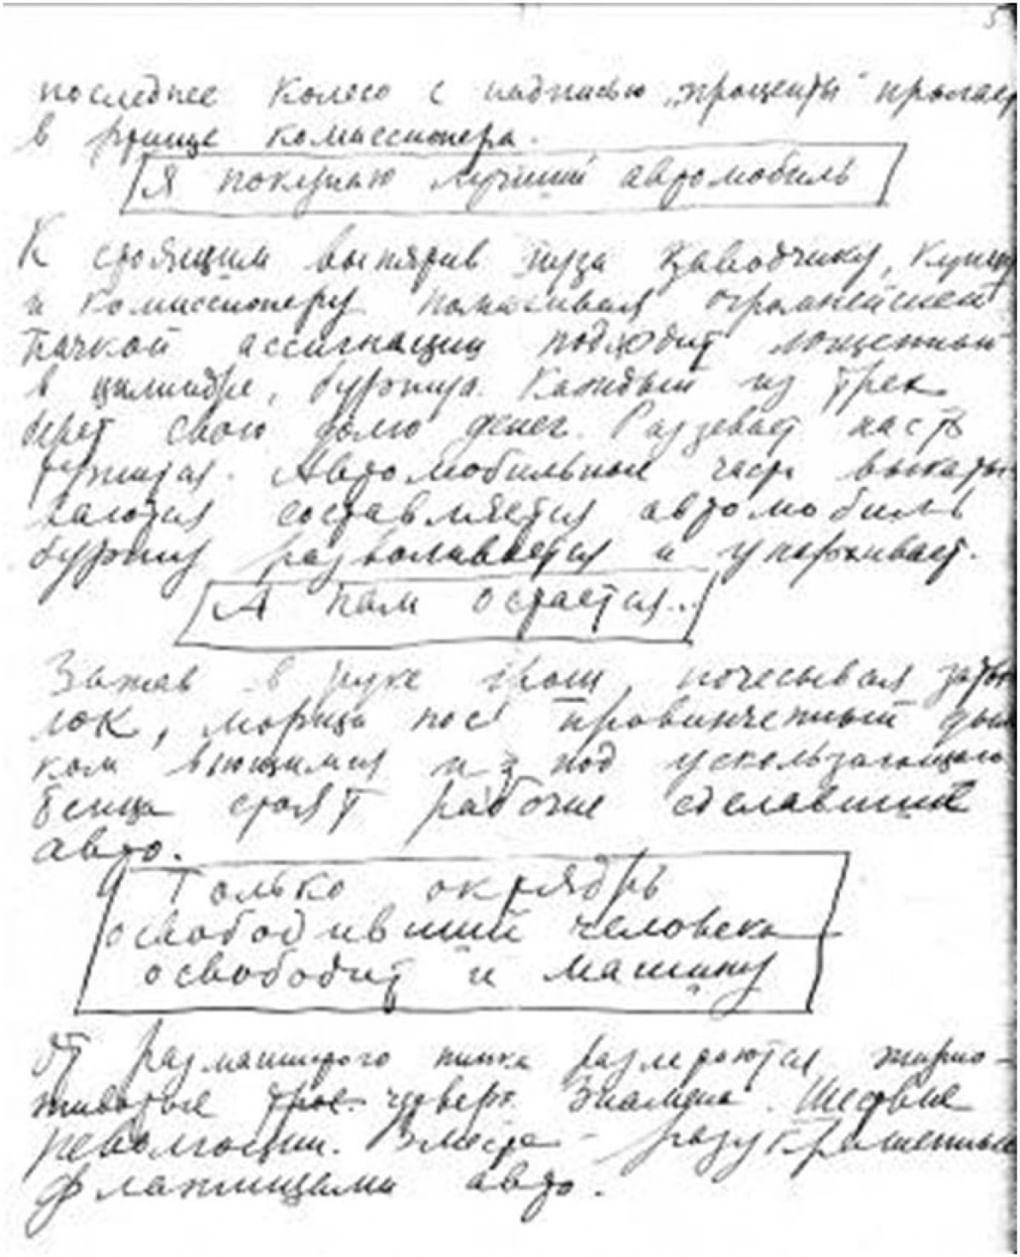 5
последнее колесо с надписью „проценты“ пропадает
в комиссионера.
Я покупаю лучший автомобиль
К стоящим выпятив пуза заводчику, купцу
и комиссионеру помахивая огромнейшей
пачкой ассигнаций подходит лощенный
в цилиндре, буржуа. Каждый из трех
берет свою долю денег. Раззевает пасть
Автомобильные части выкаты
ваются составляется автомобиль
буржуй разваливается и укатывает.
А нам остается...
Зажав в руке грош, почесывая заты
лок, морща нос провинченный дым
ком вьющимся из под ускользающего
бенца стоят рабочие сделавшие
авто.
Только октябрь
освободивший человека
освободит и машину
От размашистого пинка разлетаются жирно-
животые трое четверо. Знамена. Шествие
революции. Вместе - разукрашенные
флажищами авто.